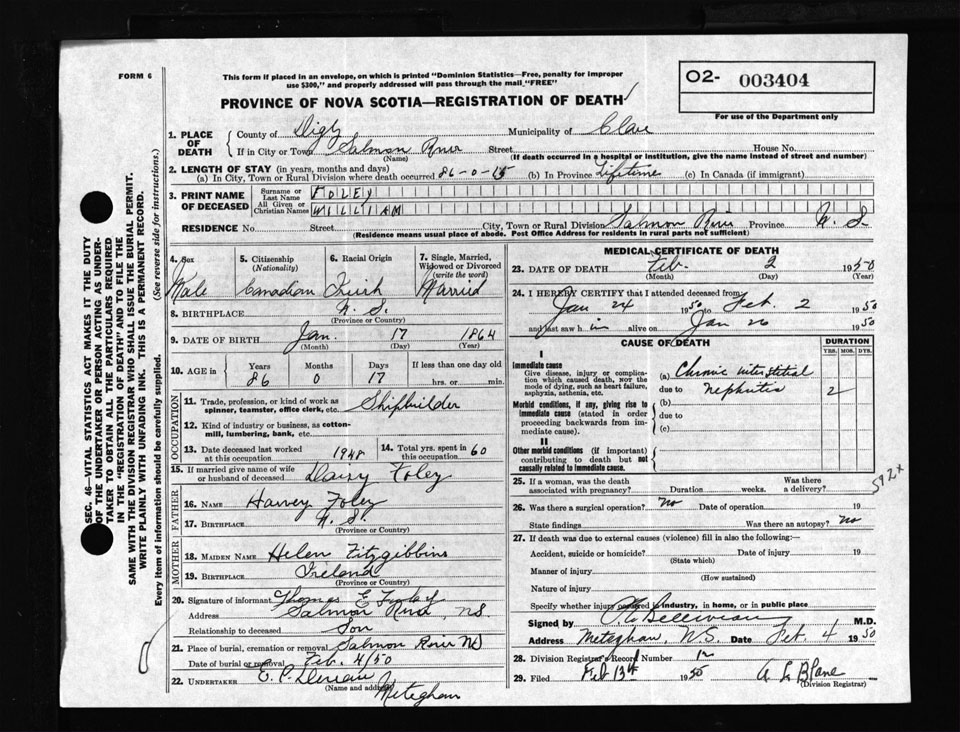 FORM 6
This form if placed in an envelope, on which is printed "Dominion Statistics—Free, penalty for improper
use $300," and properly addressed will pass through the mail "FREE"
O2- 003404
For use of the Department only
PROVINCE OF NOVA SCOTIA—REGISTRATION OF DEATH
1. PLACE OF DEATH
County of Digby Municipality of Clare
If in City or Town Salmon River Street House No.
(Name) (If death occurred in a hospital or institution, give the name instead of street and number)
2. LENGTH OF STAY (in years, months and days)
(a) In City, Town or Rural Division where death occurred 86-0-15 (b) In Province Lifetime (c) In Canada (if immigrant)
3. PRINT NAME OF DECEASED
Surname or Last Name FOLEY
All Given or Christian Names WILLIAM
RESIDENCE No. Street City, Town or Rural Division Salmon River Province N. S
(Residence means usual place of abode. Post Office Address for residents in rural parts not sufficient)
4. Sex Male
5. Citizenship (Nationality) Canadian
6. Racial Origin Irish
7. Single, Married, Widowed or Divorced (write the word) Married
8. BIRTHPLACE N. S.
(Province or Country)
9. DATE OF BIRTH Jan. 17 1864
(Month) (Day) (Year)
10. AGE in Years 86 Months 0 Days 17 If less than one day old hrs. or min.
OCCUPATION
11. Trade, profession, or kind of work as spinner, teamster, office clerk, etc. Shipbuilder
12. Kind of industry or business, as cotton-mill, lumbering, bank, etc.
13. Date deceased last worked at this occupation 1948
14. Total yrs. spent in this occupation 60
15. If married give name of wife or husband of deceased Daisy Foley
FATHER
16. NAME Harvey Foley
17. BIRTHPLACE N. S.
(Province or Country)
MOTHER
18. MAIDEN NAME Helen Fitzgibbins
19. BIRTHPLACE Ireland
(Province or Country)
20. Signature of informant Thomas E
Address Salmon River, NS
Relationship to deceased Son
21. Place of burial, cremation or removal Salmon River NS
Date of burial or removal Feb. 4/50
22. UNDERTAKER E. P.
(Name and address) Meteghan
MEDICAL CERTIFICATE OF DEATH
23. DATE OF DEATH Feb. 2 1950
(Month) (Day) (Year)
24. I HEREBY CERTIFY that I attended deceased from
Jan 24 1950 to Feb. 2 1950
and last saw him alive on Jan 26 1950
CAUSE OF DEATH
DURATION
YRS. MOS. DYS.
I
Immediate cause
Give disease, injury or complication which caused death, not the mode of dying, such as heart failure, asphyxia, asthenia, etc.
(a) Chronic interstitial
due to nephritis 2
Morbid conditions, if any, giving rise to immediate cause (stated in order proceeding backwards from immediate cause).
(b)
due to
(c)
II
Other morbid conditions (if important) contributing to death but not causally related to immediate cause.
592x
25. If a woman, was the death associated with pregnancy? Duration weeks. Was there a delivery?
26. Was there a surgical operation? No Date of operation 19
State findings Was there an autopsy? No
27. If death was due to external causes (violence) fill in also the following:—
Accident, suicide or homicide? Date of injury 19
(State which)
Manner of injury
(How sustained)
Nature of injury
Specify whether injury occurred in industry, in home, or in public place
Signed by Belliveau M.D.
Address Meteghan, N.S. Date Feb. 4 1950
28. Division Registrar's Record Number 12
29. Filed Feb 13th 1950 A L Blane
(Division Registrar)
SEC. 46—VITAL STATISTICS ACT MAKES IT THE DUTY
OF THE UNDERTAKER OR PERSON ACTING AS UNDER-
TAKER TO OBTAIN ALL THE PARTICULARS REQUIRED
IN THE "REGISTRATION OF DEATH" AND TO FILE THE
SAME WITH THE DIVISION REGISTRAR WHO SHALL ISSUE THE BURIAL PERMIT.
WRITE PLAINLY WITH UNFADING INK. THIS IS A PERMANENT RECORD.
Every item of information should be carefully supplied. (See reverse side for instructions.)